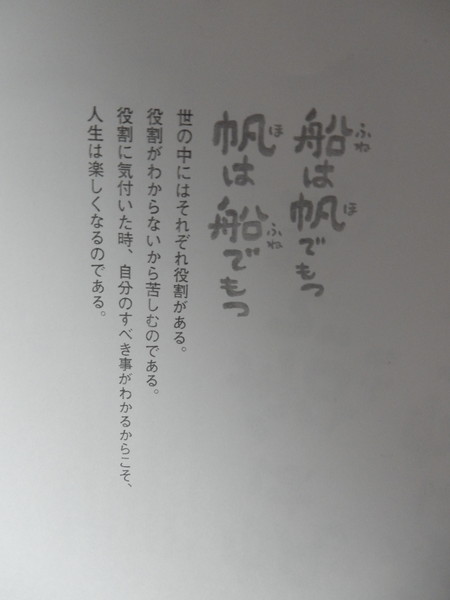 船は帆でもつ
帆は船でもつ
世の中にはそれぞれ役割がある。
役割がわからないから苦しむのである。
役割に気付いた時、自分のすべき事がわかるからこそ、
人生は楽しくなるのである。